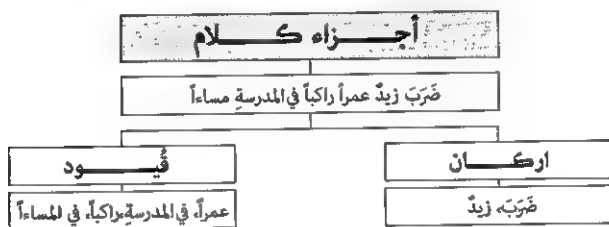 أجزاء كلام
ضَرَبَ زيدٌ عمراً راكباً في المدرسةِ مساءاً
اركان
قُيود
ضَرَبَ، زيدٌ
عمراً، في المدرسةِ،راكباً، في المساءاً